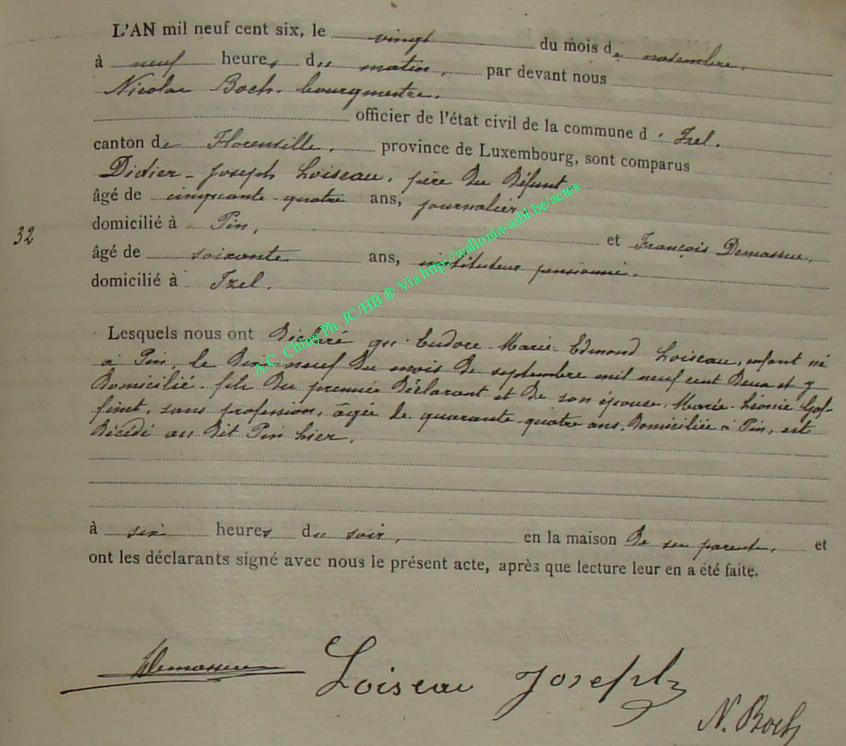 L'AN mil neuf cent six, le vingt du mois de novembre,
à neuf heures du matin, par devant nous
Nicolas Boch, bourgmestre,
officier de l'état civil de la commune d'Izel,
canton de Florenville, province de Luxembourg, sont comparus
Didier-Joseph Loiseau, père du défunt
âgé de cinquante-quatre ans, journalier,
domicilié à Pin, et François Demasure,
32
âgé de soixante ans, instituteur pensionné,
domicilié à Izel.
Lesquels nous ont déclaré que Eudore-Marie-Edmond Loiseau, enfant né
à Pin, le dix-neuf du mois de septembre mil neuf cent deux et y
domicilié, fils du premier déclarant et de son épouse, Marie-Léonie Gof-
finet, sans profession, âgée de quarante-quatre ans, domiciliée à Pin, est
décédé au dit Pin hier,
à six heures du soir, en la maison de ses parents, et
ont les déclarants signé avec nous le présent acte, après que lecture leur en a été faite.
Loiseau Joseph
N. Boch
A.C. Chiny Ph. JC/HB ® Via http://wallonia-asbl.be/actes